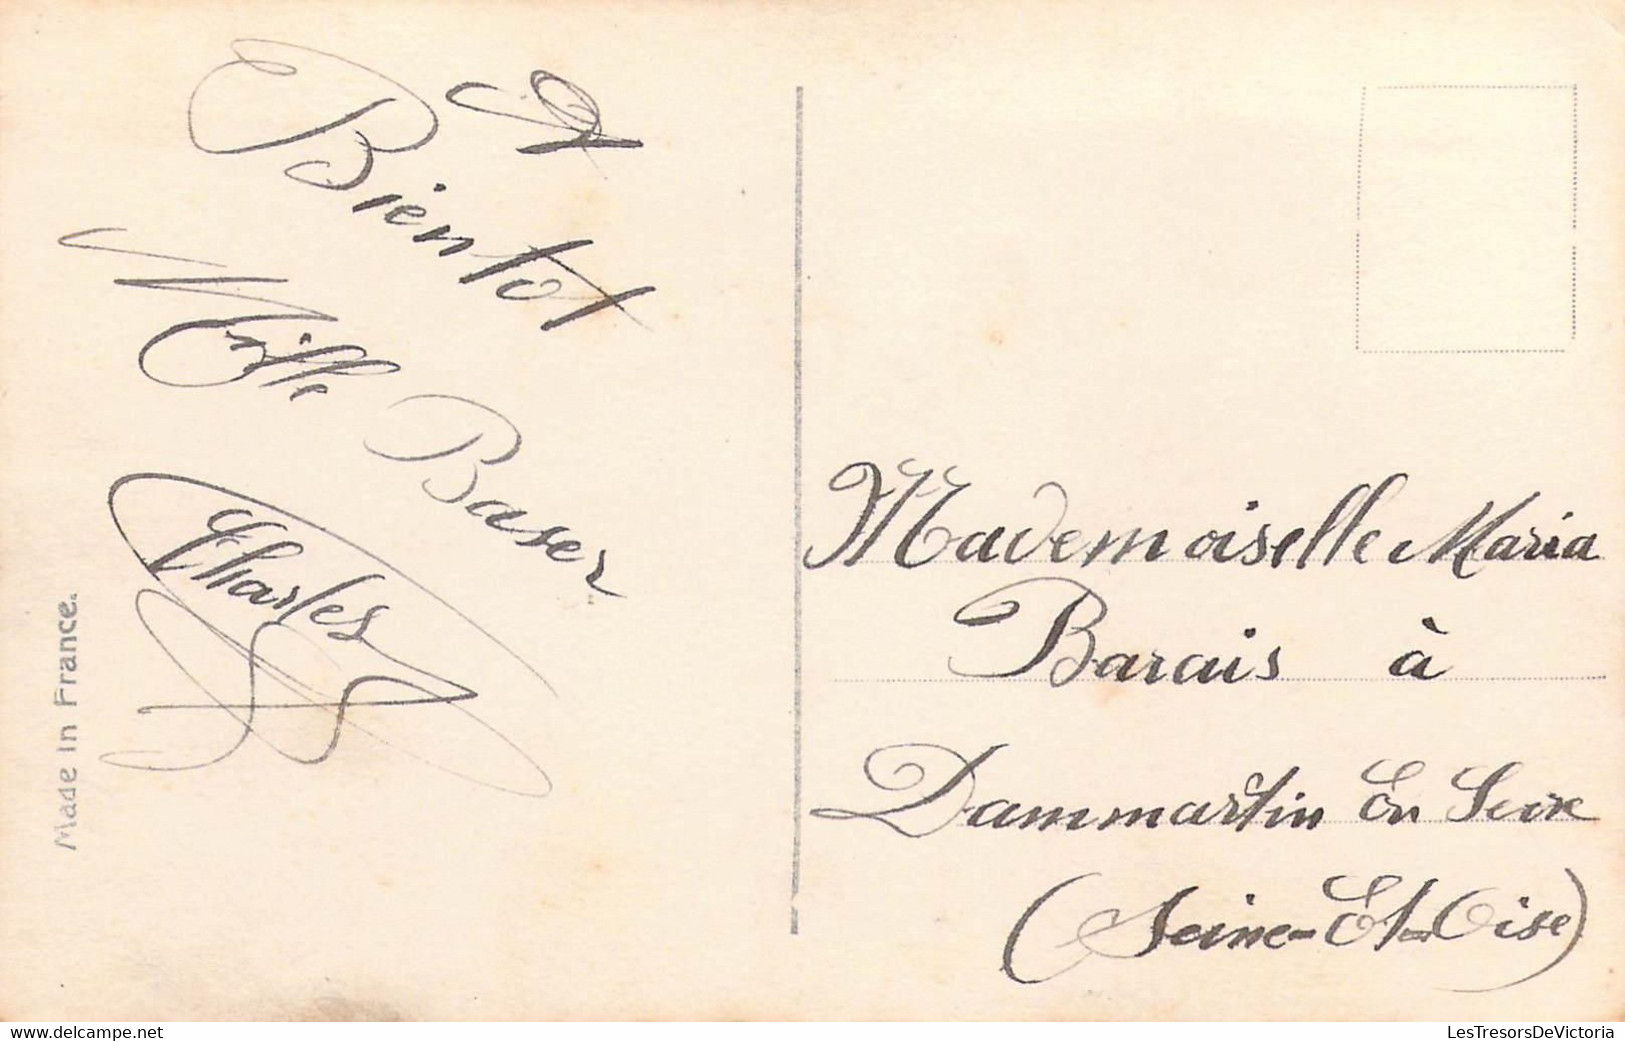 A
Bientot
Mille Baser
Charles
Made in France.
Mademoiselle Maria
Barais à
Dammartin En Serve
(Seine-Et-Oise)
www.delcampe.net
LesTresorsDeVictoria